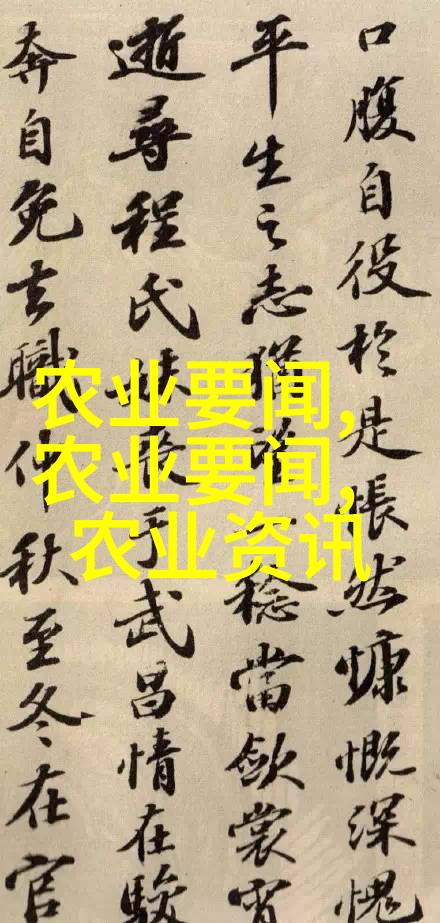 口腹自役於是悵然慷慨深愧
平生之志猶望一稔當歛裳宵
逝尋程氏妹喪于武昌情在駿
奔自免去職仲秋至冬在官
农业要闻,
农业要闻,
农业资讯